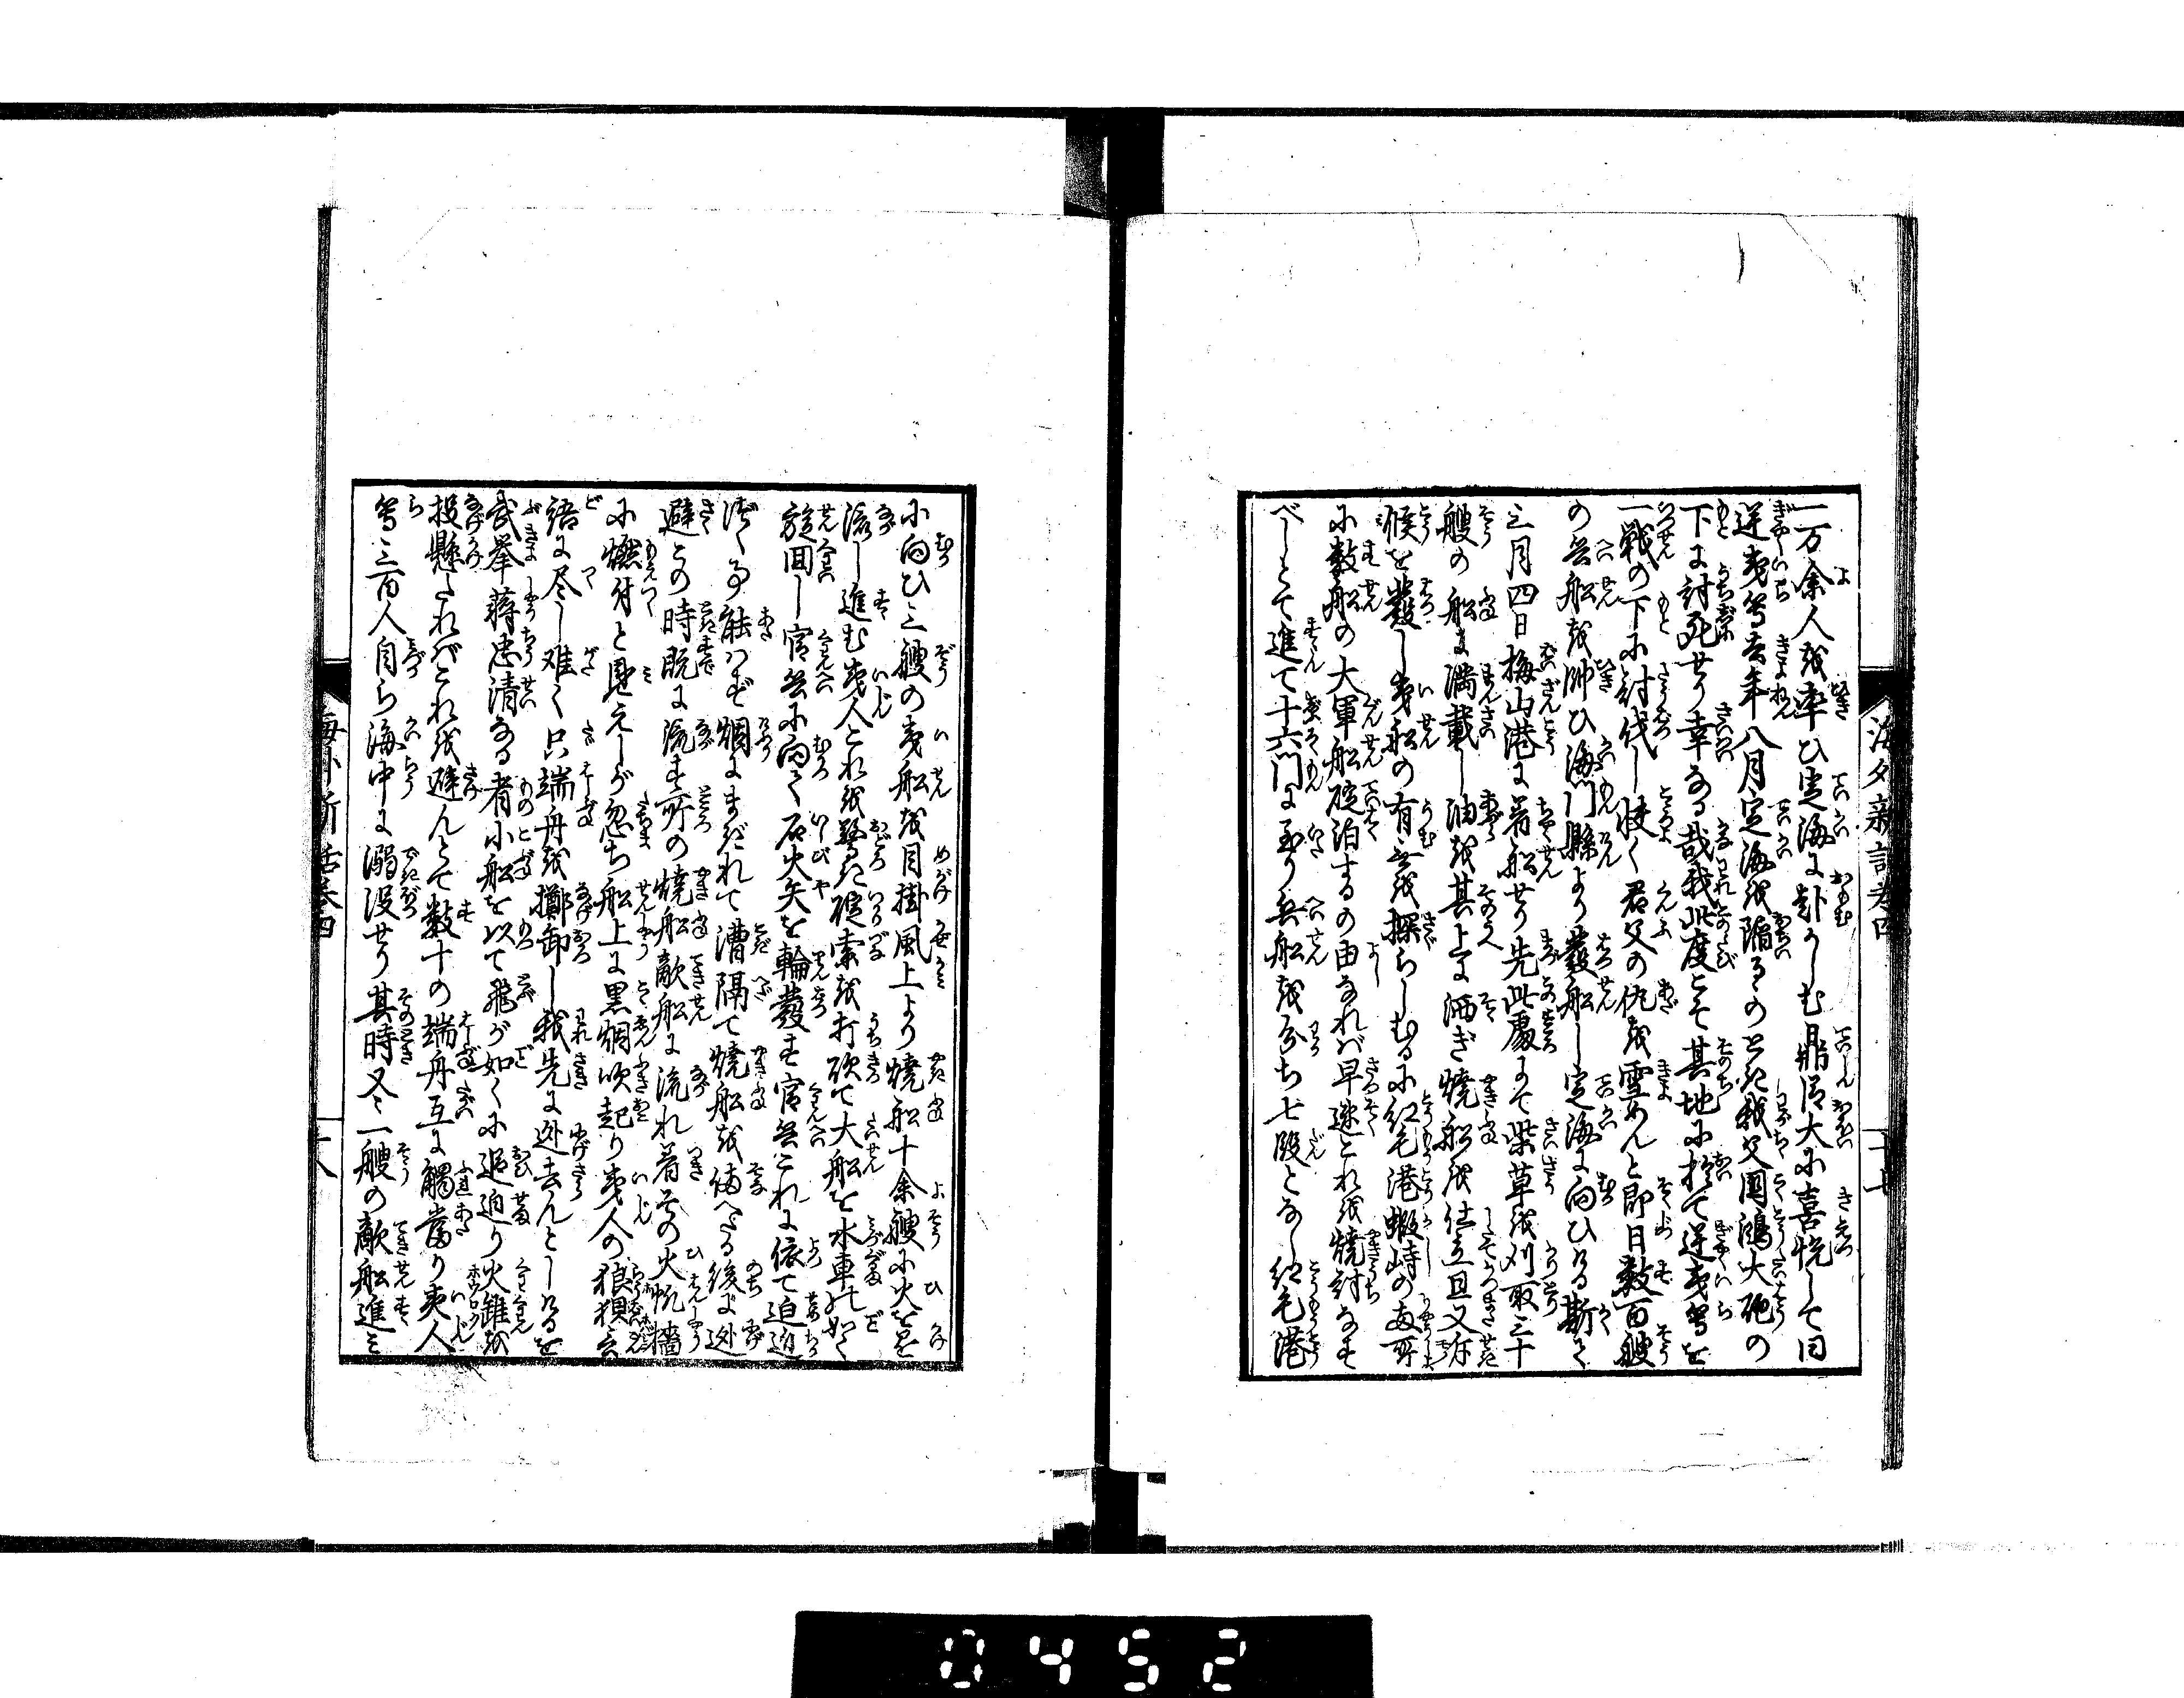 一万余人を率ひ定海に赴かしむ鼎臣大に喜悦して曰
逆夷等去年八月定海を陥るのとき我父国鴻大砲の
下に討死せり幸なる哉我此度こそ其地に於て逆夷等を
一戦の下に討伐し捷く君父の仇を雪めんと即日数百艘
の兵船を帥ひ海門縣より發船し定海に向ひける斯て
三月四日梅山港に着船せり先此處にて柴草を刈取三十
艘の船に満載し油を其上に洒ぎ焼船を仕立且又斥
候を發し夷船の有無を探らしむるに紅毛港蝦峙の両所
に数船の大軍船碇泊するの由なれば早速これを焼討なす
べしとて進て十六門に至り兵船を分ち七段となし紅毛港
海外新話巻四
十七
に向ひ三艘の夷船を目掛風上より焼船十余艘に火を
流し進む夷人これを驚き碇索を打砍て大船を水車の如く
旋回し官兵に向て石火矢を輪發す官兵これに依て迫
づく事能はず烟にまぎれて漕隔て焼船を備へたる後に逃
避この時既に流す所の焼船敵船に流れ着其の火帆檣
に燃付と見えしが忽ち船上に黒烟吹起り夷人の狼狽言
語に尽し難く只端舟を擲卸し我先に逃去んとしけるを
武挙蒋忠清なる者小船を以て飛が如くに追迫り火鑵を
投懸たればこれを避んとて数十の端舟互に觸當り夷人
等二三百人自ら海中に溺没せり其時又一艘の敵船進ミ
海外新話巻四
十八
0452